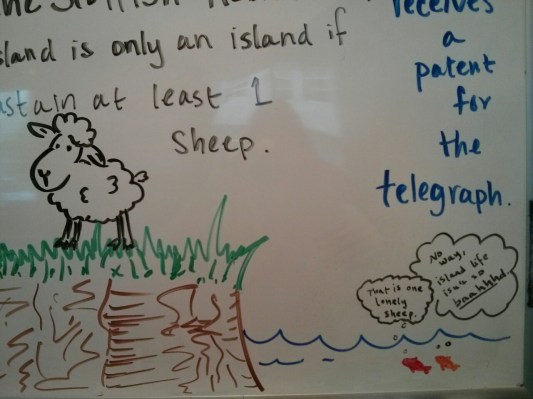 Scottish
sland is only an island if
stain at least 1
Sheep.
receives
a
patent
for
the
telegraph.
That is one
lonely
sheep.
No
way!
island life
isn't so